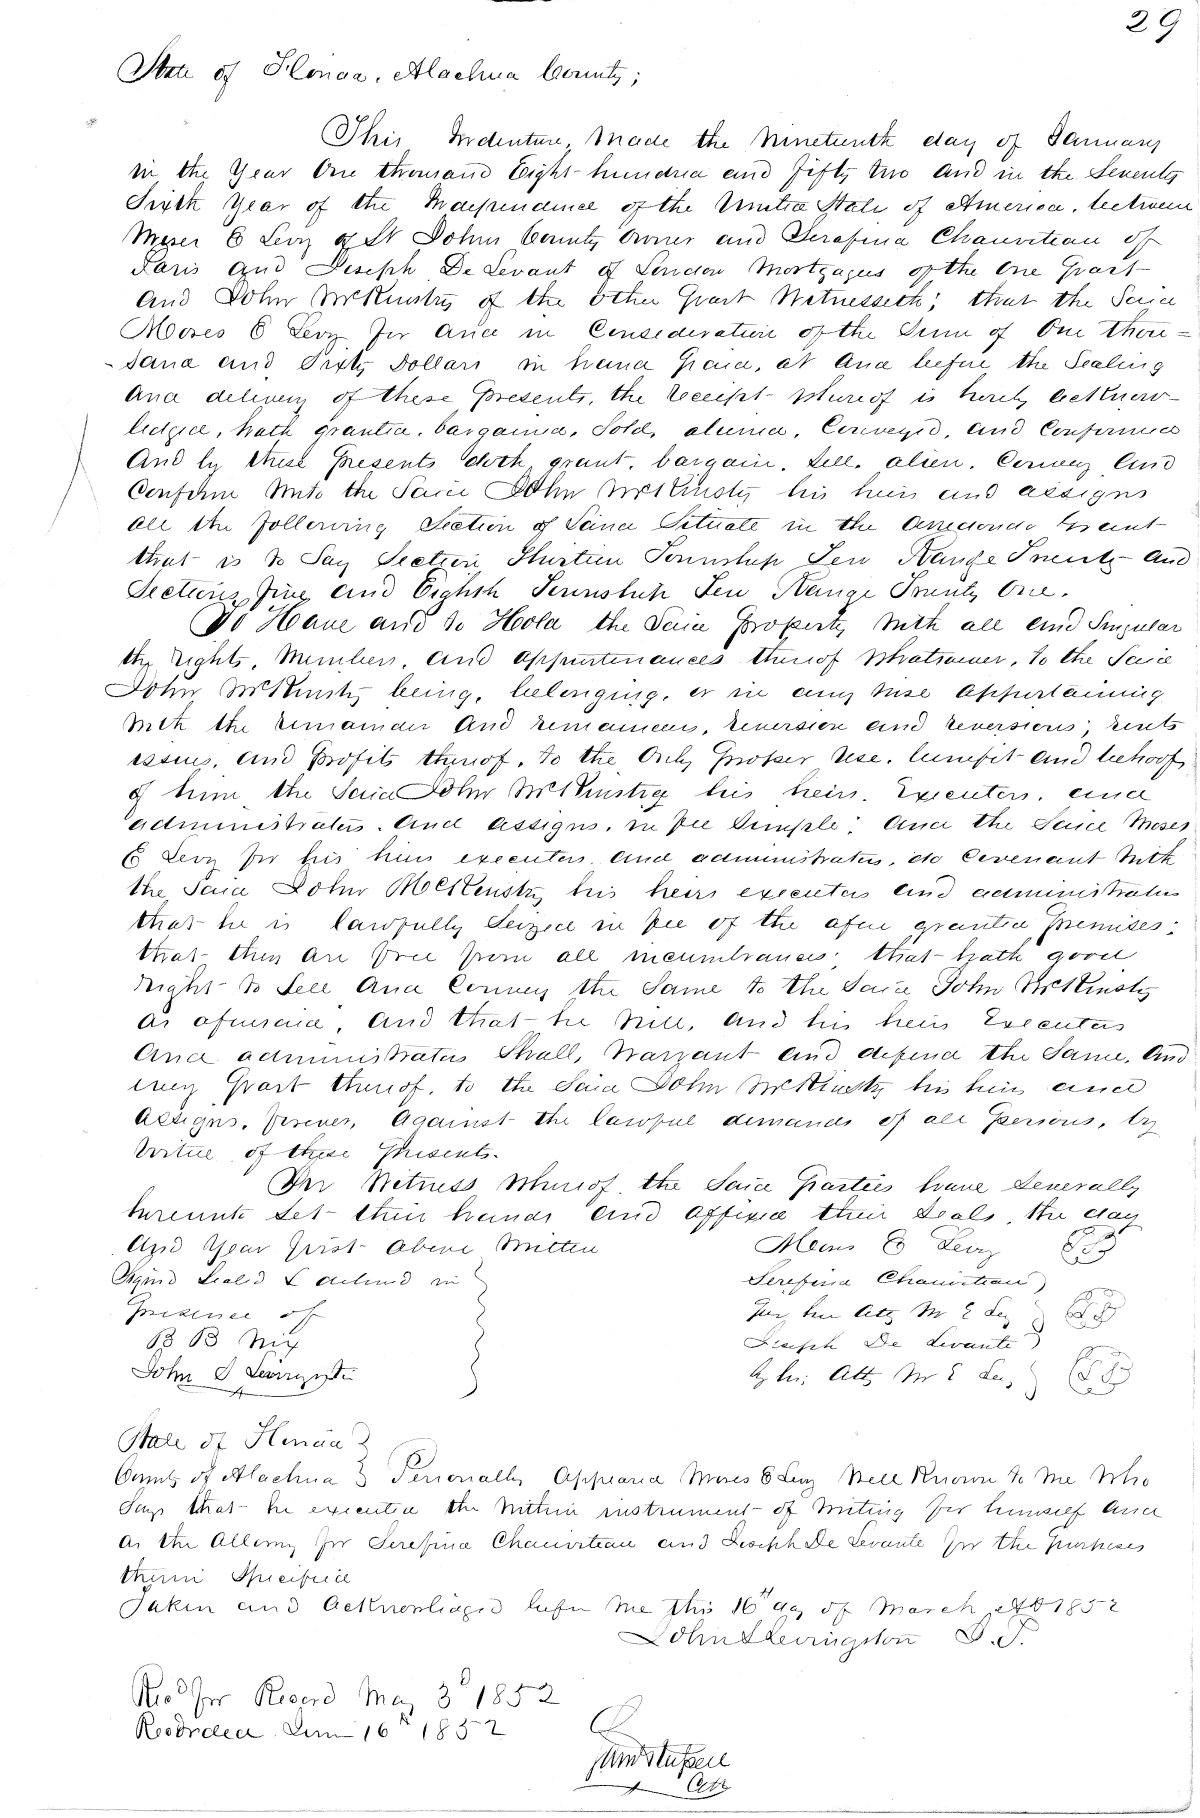 29
State of Florida, Alachua County;
This Indenture, Made the Nineteenth day of January
in the Year One thousand Eight hundred and fifty two and in the Seventy
Sixth Year of the Independence of the United State of America, between
Moses E Levy of St Johns County Owner and Serafina Chauviteau of
Paris and Joseph De Levant of London Mortgagees of the One Part
and John McKinstry of the other Part Witnesseth; that the Said
Moses E Levy for and in Consideration of the Sum of One thou=
-sand and Sixty Dollars in hand paid, at and before the Sealing
and delivery of these Presents, the receipt whereof is hereby acknow-
ledged, hath granted, bargained, Sold, aliened, Conveyed, and Confirmed
And by these Presents doth grant, bargain, Sell, alien, Convey and
Confirm Unto the Said John McKinstry his heirs and assigns
all the following Section of Land Situate in the Arredondo Grant
that is to Say Section Thirteen Township Ten Range Twenty and
Sections five and Eighth Township Ten Range Twenty One.
To Have and to Hold the Said Property With all and Singular
the rights, Members, and appurtenances thereof Whatsoever, to the Said
John McKinstry being, belonging, or in any Wise appertaining
With the remainder and remainders, reversion and reversions; rents
issues, and Profits thereof, to the Only Proper Use, benefit and behoof,
of him the Said John McKinstry his heirs, Executors, and
administrators, and assigns, in fee Simple; And the Said Moses
E Levy for his heirs executors and administrators, do Covenant With
the Said John McKinstry his heirs executors and administrators
that he is lawfully Seized in fee of the afore granted Premises;
that they are free from all incumbrances; that hath good
right to Sell and Convey the Same to the Said John McKinstry
as aforesaid, and that he Will, and his heirs Executors
And administrators Shall, Warrant and defend the Same, and
every Part thereof, to the Said John McKinstry his heirs and
Assigns, forever, Against the lawful demands of all Persons, by
Virtue of these Presents.
In Witness Whereof, the Said Parties have Severally
hereunto Set their hands and affixed their Seals, the day
And Year first above Written
Moses E Levy
Signd Seald & deliverd in
Presence of
B B Nix
John S Livingston
Serefina Chauviteau
Per her Atty M E Levy
Joseph De Levante
By his Atty M E Levy
State of Florida
County of Alachua Personally Appeared Moses E Levy Well Known to Me Who
Says that he executed the Within instrument of Writing for himself And
as the Attorney for Serefina Chauviteau and Joseph De Levante for the Purposes
therein Specified
Taken and Acknowledged before Me this 16th day of March AD 1852
John S Livingston J. P.
Recd for Record May 3d 1852
Recorded June 16th 1852
Clk